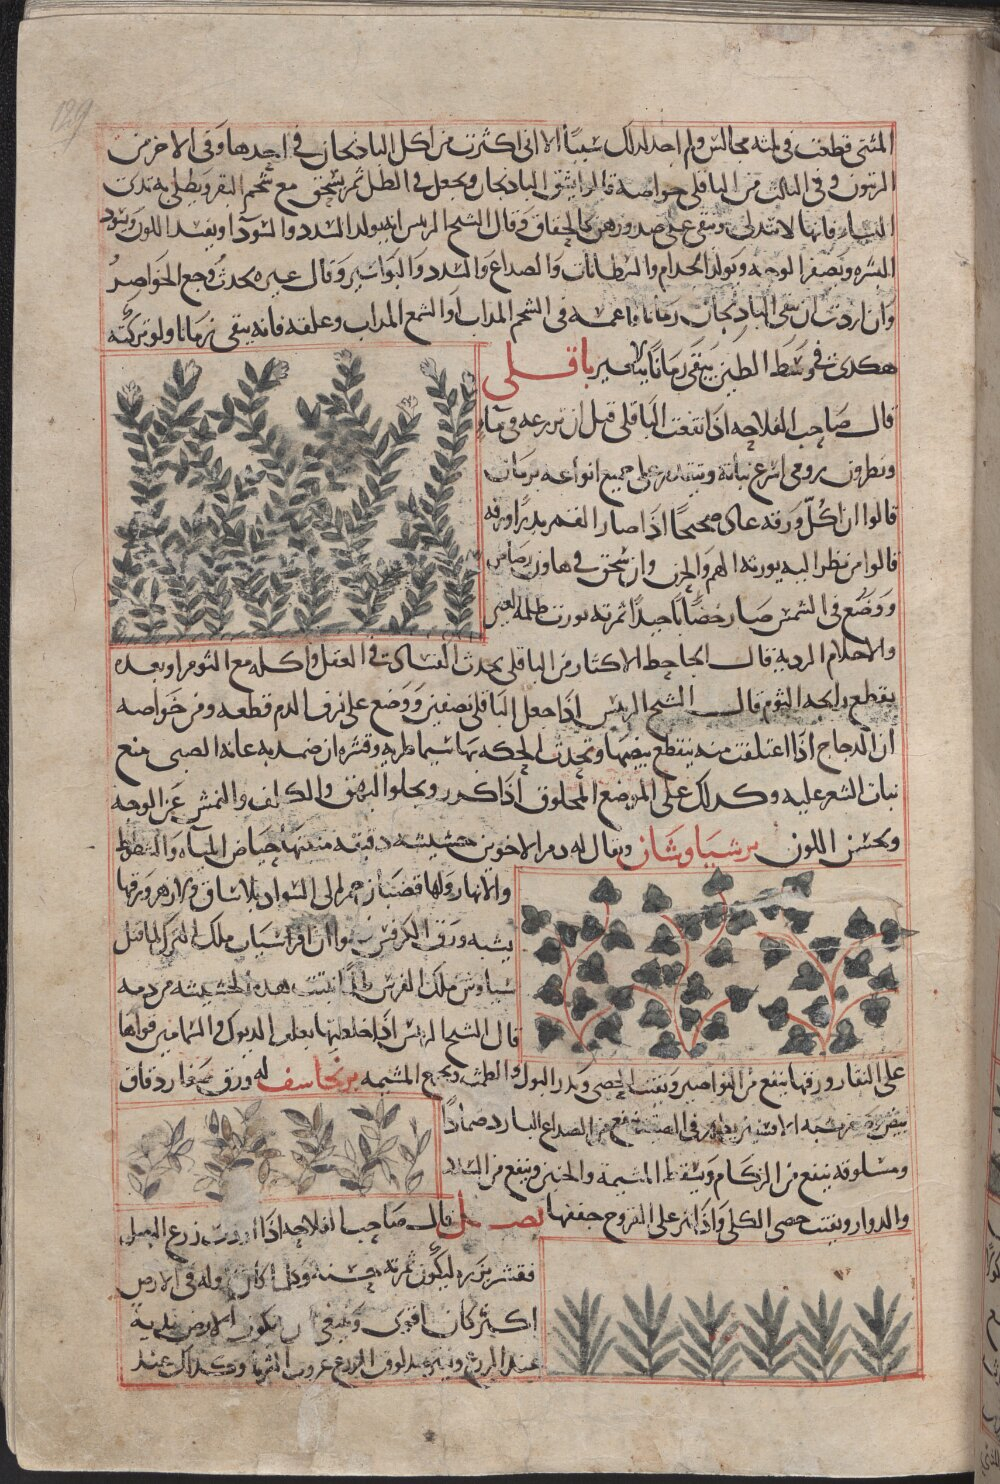 129
المثنى قطعت في ثلثة مجالس ولم اجد لذلك سببا الا انى اكثرت من اكل الباذنجان في احدها وفى الاخر من
الزيتون وفى الثالث من الباقلى خواصه قالوا يشق الباذنجان ويجعل في الطل ثم يسحق مع شحم البقر ويطلى به ثدى
النساء فانها لا تتدلى وتبقى على صدورهن كالحقاق وقال الشيخ الرئيس انه يولد السدد والسوداء ويفسد اللون ويسود
البشره ويصفر الوجه ويولد الجذام والسرطانات والصداع والسدد والبواسير وقال غيره يحدث وجع الخواصر
وان اردت ان يبقى الباذنجان زمانا فاغمسه في الشحم المذاب او الشمع المذاب وعلقه فانه يبقى زمانا ولو تركته
هكذى في وسط الطين يبقى زمانا بلا تغير باقلى
قال صاحب الفلاحه اذا نقعت الباقلى قبل ان تزرعه في ماء
ونطرون رومى اسرع نباته ويتقدم على جميع انواعه بزمان
قالوا ان اكل ورقه عاد صحيحا اذا صار القمر بدرا ورقه
قالوا من نظر اليه يورثه الهم والحزن وان سحق في هاون رصاص
ووضع في الشمس صار خضابا جيدا ثمرته تورث ظلمة العين
والاحلام الردية قال الجاحظ الاكثار من الباقلى يحدث الفساد في العقل واكله مع الثوم او بعده
يقطع رايحه الثوم قال الشيخ الرئيس اذا جعل الباقلى نصفين ووضع على نزف الدم قطعه ومن خواصه
ان الدجاج اذا اعتلفت منه ينقطع بيضها وتحدث الحكه بها سيما طريه وقشره ان ضمد به عانه الصبى منع
نبات الشعر عليه وكذلك على الموضع المحلوق اذا كرر ويجلو البهق والكلف والنمش عن الوجه
ويحسن اللون برشياوشان ويقال له دم الاخوين حشيشه دقيقه منبتها حياض المياه والشطوط
والانهار ولها قضبان حمر الى السواد بلا ساق ولا زهر ورقها
يشبه ورق الكرفس قالوا ان افراسياب ملك الترك لما قتل
سياوش ملك الفرس ظلما نبتت هذه الحشيشه من دمه
قال الشيخ الرئيس اذا خلط بعلف الديوك والسمانى قواها
على النقار ورقها ينفع من النواصير ويفتت الحصى ويدر البول والطمث ويخرج المشيمه برنجاسف له ورق صغار دقاق
شبه الافسنتين يظهر في الصيف ينفع من الصداع البارد ضمادا
ومسلوقه ينفع من الزكام ويسقط المشيمة والجنين وينفع من السدد
والدوار ويفتت حصى الكلى واذا نثر على القروح جففها بصل قال صاحب الفلاحه اذا اردت زرع البصل
فقشر بزره ليكون ثمرته حسنه وكل ما كان نزوله في الارض
اكثر كان اقوى وينبغى ان يكون الارض ندية
عند الزرع عروب الثريا وكذلك عند